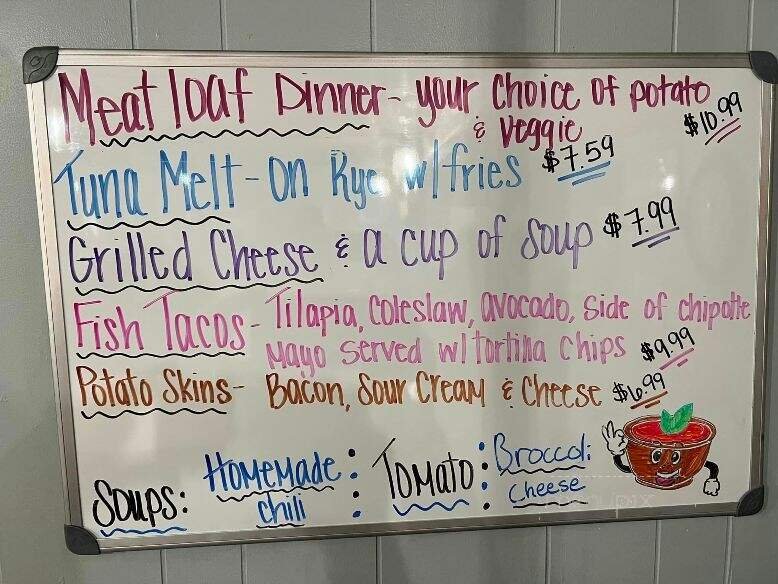 Meat loaf Dinner - your choice of potato
& Veggie $10.99
Tuna Melt - On Rye w/ fries $7.59
Grilled Cheese & a cup of soup $7.99
Fish Tacos - Tilapia, Coleslaw, avocado, side of chipotle
Mayo served w/ tortilla chips $9.99
Potato Skins - Bacon, Sour Cream & Cheese $6.99
Soups: Homemade chili : Tomato : Broccoli cheese